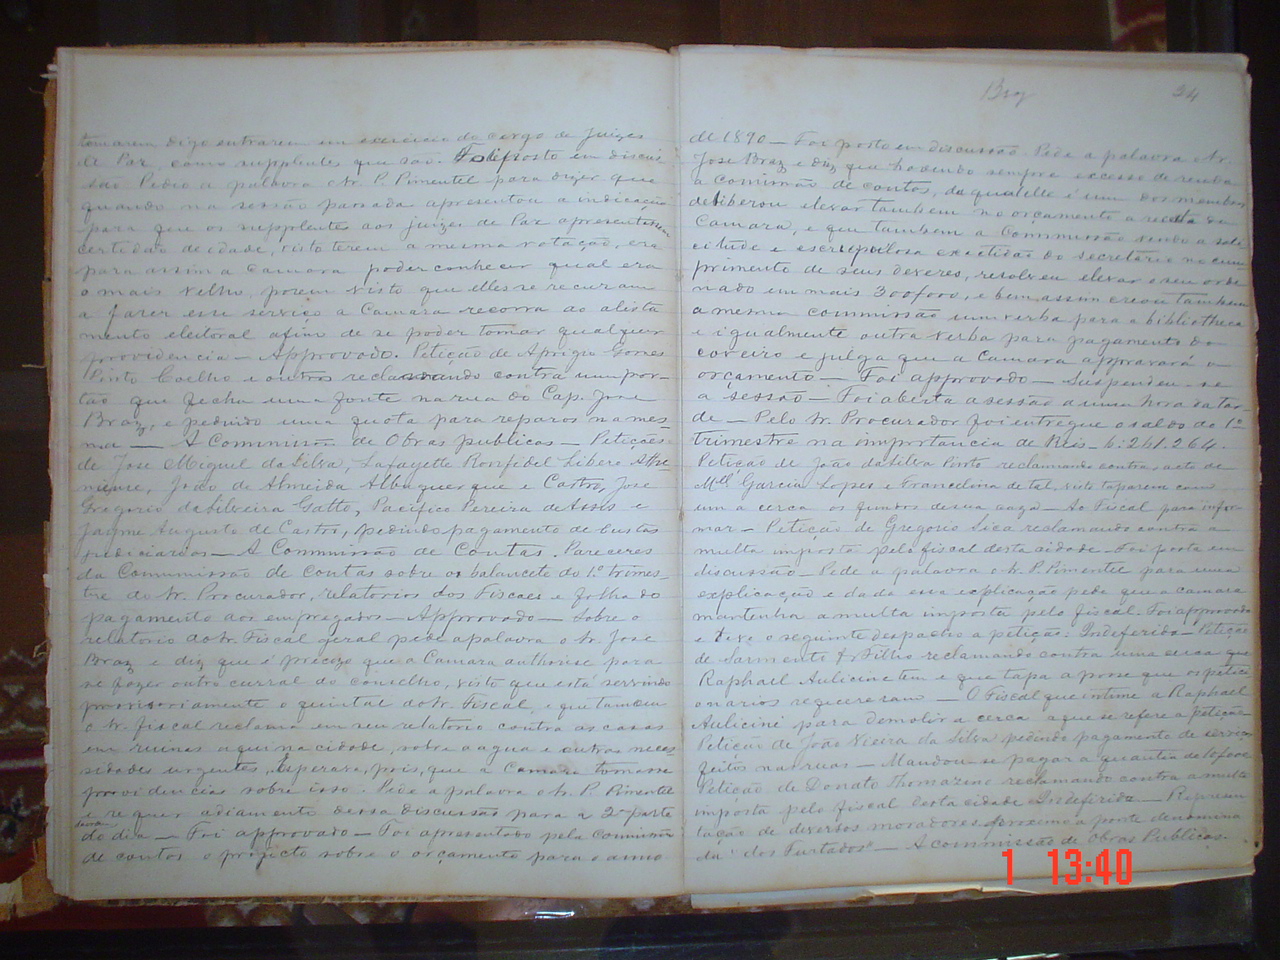 tomarem digo entrarem em exercicio do cargo de Juizes
de Paz, como supplentes que são. Foi posto em discus-
são Pedio a palavra o Sr. P. Pimentel para dizer que
quando na sessão passada apresentou a indicação
para que os supplentes aos juizes de Paz apresentassem
certidão de idade, visto terem a mesma votação, era
para assim a Camara poder conhecer qual era
o mais velho, porem visto que elles se recuram
a fazer esse serviço a Camara recorra ao alista
mento eleitoral afim de se poder tomar qualquer
providencia — Approvado. Petição de Aprigio Gomes
Pinto Coelho e outros reclamando contra um por-
tão que fecha uma fonte na rua do Cap. José
Braz, e pedindo uma quota para reparos na mes
ma — A Commissão de Obras publicas — Petições
de José Miguel da Silva, Lafayette Bonfidel Libero Athe
niense, João de Almeida Albuquerque e Castro, José
Gregorio da Silveira Gatto, Pacifico Pereira de Assis e
Jayme Augusto de Castro, pedindo pagamento de custas
judiciarias — A Commissão de Contas. Pareceres
da Commissão de Contas sobre os balancete do 1º trimes-
tre do Sr. Procurador, relatorios dos Fiscaes e folha do
pagamento aos empregados — Approvado — Sobre o
relatorio do Sr. Fiscal geral pede a palavra o Sr. José
Braz e diz que é precizo que a Camara authorise para
se fazer outro curral do conselho, visto que está servindo
provisoriamente o quintal do Sr. Fiscal, e que tambem
o Sr. fiscal reclama em seu relatorio contra as casas
em ruinas aqui na cidade, sobre a agua e outras neces
sidades urgentes, esperava, pois, que a Camara tomasse
providencias sobre isso. Pede a palavra o Sr. P. Pimentel
e requer adiamento dessa discussão para a 2ª parte
do dia — Foi approvado — Foi apresentado pela Commissão
de contas o projecto sobre o orçamento para o anno
Braz
24
de 1890 — Foi posto em discussão. Pede a palavra o Sr.
José Braz e diz que havendo sempre excesso de receita
a Commissão de contas, da qual elle é um dos membros
deliberou elevar tambem no orçamento a receita da
Camara, e que tambem a Commissão vendo a soli
citude e escrupulosa exactidão do secretario no cum-
primento de seus deveres, resolveu elevar o seu orde
nado em mais 300$000, e bem assim creou tambem
a mesma commissão uma verba para a bibliotheca
e igualmente outra verba para pagamento do
coveiro e julga que a Camara approvará o
orçamento — Foi approvado — Suspendeu-se
a sessão — Foi aberta a sessão a uma hora da tar
de — Pelo Sr. Procurador foi entregue o saldo do 1º
trimestre na importancia de Reis — 6:261.264.
Petição de João da Silva Pinto reclamando contra, acto de
Mel Garcia Lopes e Francelina de tal, visto taparem com
uma cerca os fundos de sua caza — Ao Fiscal para infor-
mar — Petição de Gregorio Lica reclamando contra a
multa imposta pelo fiscal desta cidade — Foi posta em
discussão — Pede a palavra o Sr. P. Pimentel para uma
explicação e dada essa explicação pede que a camara
mantenha a multa imposta pelo fiscal. Foi approvado
e teve o seguinte despacho a petição: Indeferido — Petição
de Sarmento & Filho reclamando contra uma cerca que
Raphael Aulicine tem e que tapa que os petici
onarios requereram — O Fiscal que intime a Raphael
Aulicine para demolir a cerca a que se refere a petição
Petição de João Vieira da Silva pedindo pagamento de serviços
feitos nas ruas — Mandou-se pagar a quantia de
Petição de Donato Thomazino reclamando contra a multa
imposta pelo fiscal desta cidade Indeferido — Represen
tação de diversos moradores proximo a ponte denomina
da "dos Furtados" — A commissão de Obras Publicas.
1 13:40